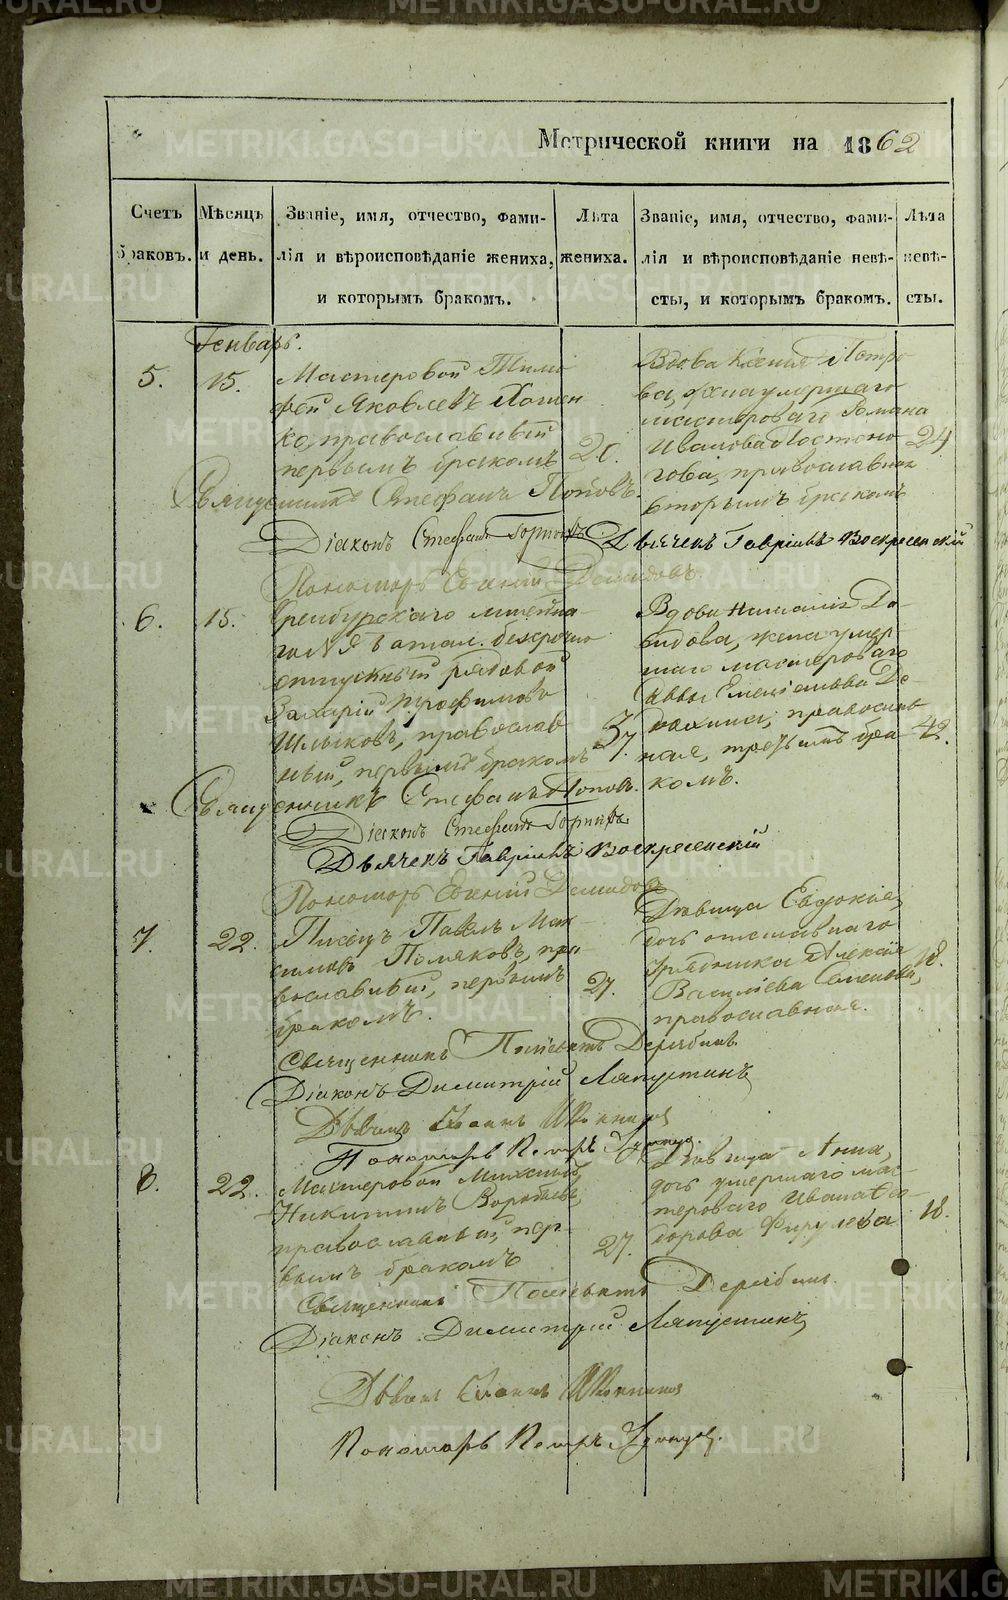 METRIKI.GASO-URAL.RU
Метрической книги на 1862
Счетъ браковъ.
Мѣсяцъ и день.
Званіе, имя, отчество, фами-
лія и вѣроисповѣданіе жениха,
и которымъ бракомъ.
Лѣта
жениха.
Званіе, имя, отчество, фами-
лія и вѣроисповѣданіе невѣ-
сты, и которымъ бракомъ.
Лѣта
невѣ-
сты.
Генварь.
5.
15.
Мастеровой Тимо
фей Яковлевъ
ко, православный
первымъ бракомъ
20.
Вдова Ксенія Петро
ва, жена умершаго
мастероваго Романа
Иванова
гова, православная
вторымъ бракомъ
24
Священникъ Стефанъ Поповъ.
Діаконъ Стефанъ
Дьячекъ Гавріилъ Воскресенскій
Пономарь Евгеній Демидовъ.
6.
15.
Оренбургскаго линейна
го № Батал. безсрочно
отпускный рядовой
Захарій Трофимовъ
Шлыковъ, православ
ный, первымъ бракомъ
37.
Вдова Наталія Да
выдова, жена умер
шаго мастероваго
Саввы Емельянова
православ
ная, третьимъ бра
комъ.
42.
Священникъ Стефанъ Поповъ.
Діаконъ Стефанъ
Дьячекъ Гавріилъ Воскресенскій
Пономарь Евгеній Демидовъ
7.
22.
Писецъ Павелъ Мак
симовъ Поляковъ, пра
вославный, первымъ
бракомъ.
27.
Дѣвица Евдокія,
дочь отставнаго
урядника Алексія
Василіева Семенова,
православная.
18.
Священникъ Дерябинъ
Діаконъ Димитрій Ляпустинъ
Іоаннъ
Пономарь Петръ
8.
22.
Мастеровой Михаилъ
Никитинъ Воробьевъ,
православный, пер
вымъ бракомъ
27.
Дѣвица Анна,
дочь умершаго мас-
тероваго Ивана Ѳе
дорова
18.
Священникъ Дерябинъ.
Діаконъ Димитрій Ляпустинъ
Іоаннъ
Пономарь Петръ